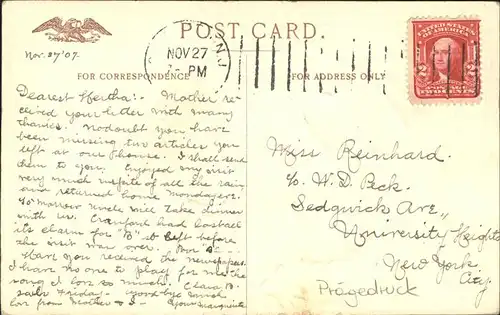 POST CARD.
Nov. 27 '07.
NOV 27
PM
FOR CORRESPONDENCE
FOR ADDRESS ONLY
UNITED STATES
OF AMERICA
2 2
POSTAGE
TWO CENTS
Dearest Hertha:- Mother re-
ceived your letter with many
thanks. No doubt you have
been missing two articles you
left at our house. I shall send
them to you. Enjoyed my visit
very much in spite of all the rain
and returned home Monday eve.
To-morrow uncle will take dinner
with us. Cranford had lost all
its charm for "B" & left before
the visit was over. Poor "B"-
Have you received the newspaper
I have no one to play for me the
song I love so much. Clara B.
Friday - Good-bye much
love from Mother & I - Your Marguerite
Miss Reinhard.
c/o W. D. Peck.
Sedgwick Ave.,
University Heights
New York
City.
Prägedruck